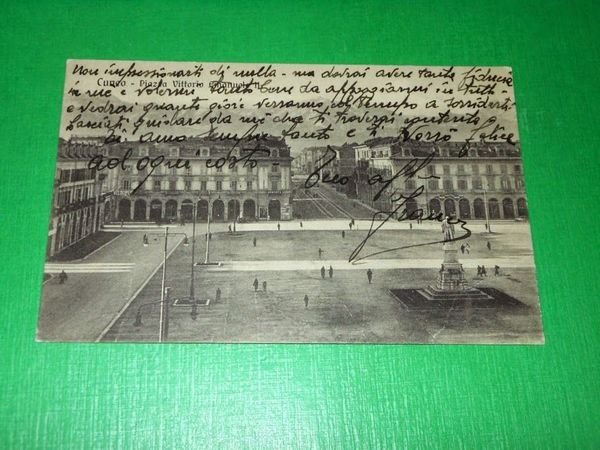 Non impressionarti di nulla - ma dovrai avere tanta fiducia
Cuneo - Piazza Vittorio Emanuele II
in me e volermi tanto bene da appoggiarmi in tutto
e vedrai quante gioie verranno col tempo a sorriderti
Lasciati guidare da me che ti troverai contenta
Ti amo sempre tanto e ti vorrò felice
ad ogni costo -
Tuo aff
Franco